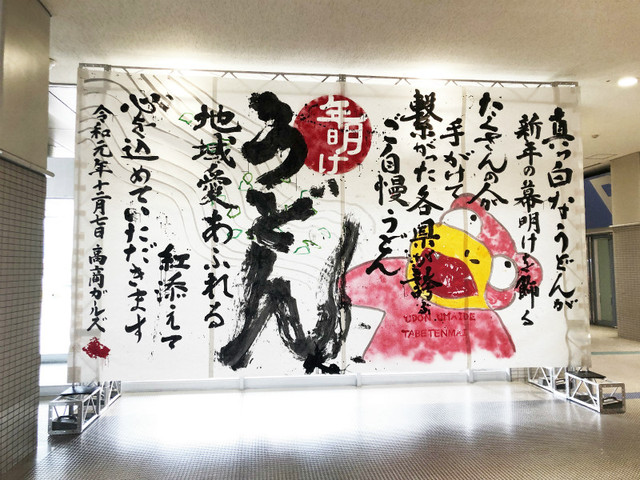 真っ白なうどんが
新年の幕明けを飾る
たくさんの人が
手がけて
繋がった各県が誇る
ご自慢うどん
年明け
うどん
地域愛あふれる
紅添えて
心を込めていただきます
令和元年十二月七日 高商ガールズ
UDON UMAIDE
TABETENMAI